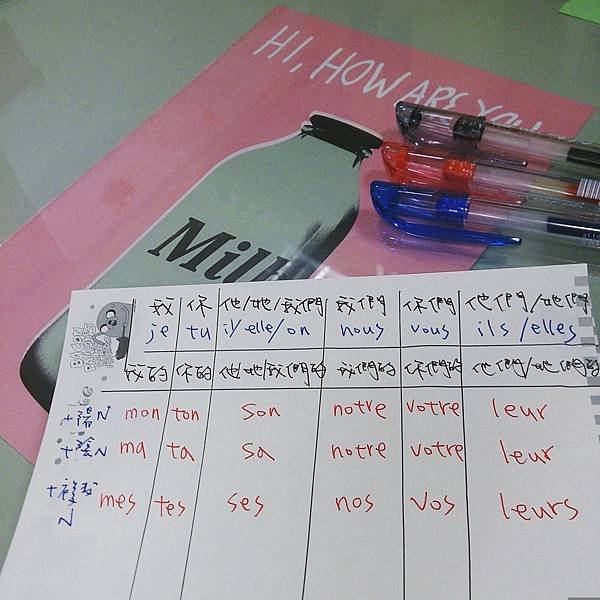 HI, HOW ARE YOU
Milk
我 你 他/她/我們 我們 你們 他們/她們
je tu il/elle/on nous vous ils/elles
我的 你的 他/她/我們的 我們的 你們的 他們/她們的
+陽N mon ton son notre votre leur
+陰N ma ta sa notre votre leur
+複數N mes tes ses nos vos leurs